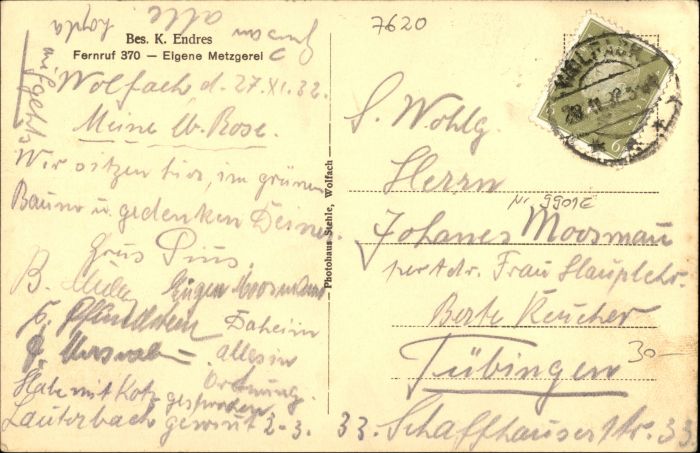 7620
Bes. K. Endres
Fernruf 370 — Eigene Metzgerei
Wolfach, d. 27.XI.32.
Meine lb. Rose.
Wir sitzen hier, im grünen
Baum u. gedenken Deiner.
Grus Pius.
B. Eugen Moosmann
Daheim
alles in
Ordnung.
Habe mit Kotz gesprochen
Lauterbach gewint 2-3.
Photohaus Stehle, Wolfach
WOLFACH
6
S. Wohlg.
Herrn
Nr. 9901E
Johanes Moosmau
per Adr. Frau Hauptlehr.
Berte Reucher
Tübingen
30-
33. Schaffhauserstr. 33.